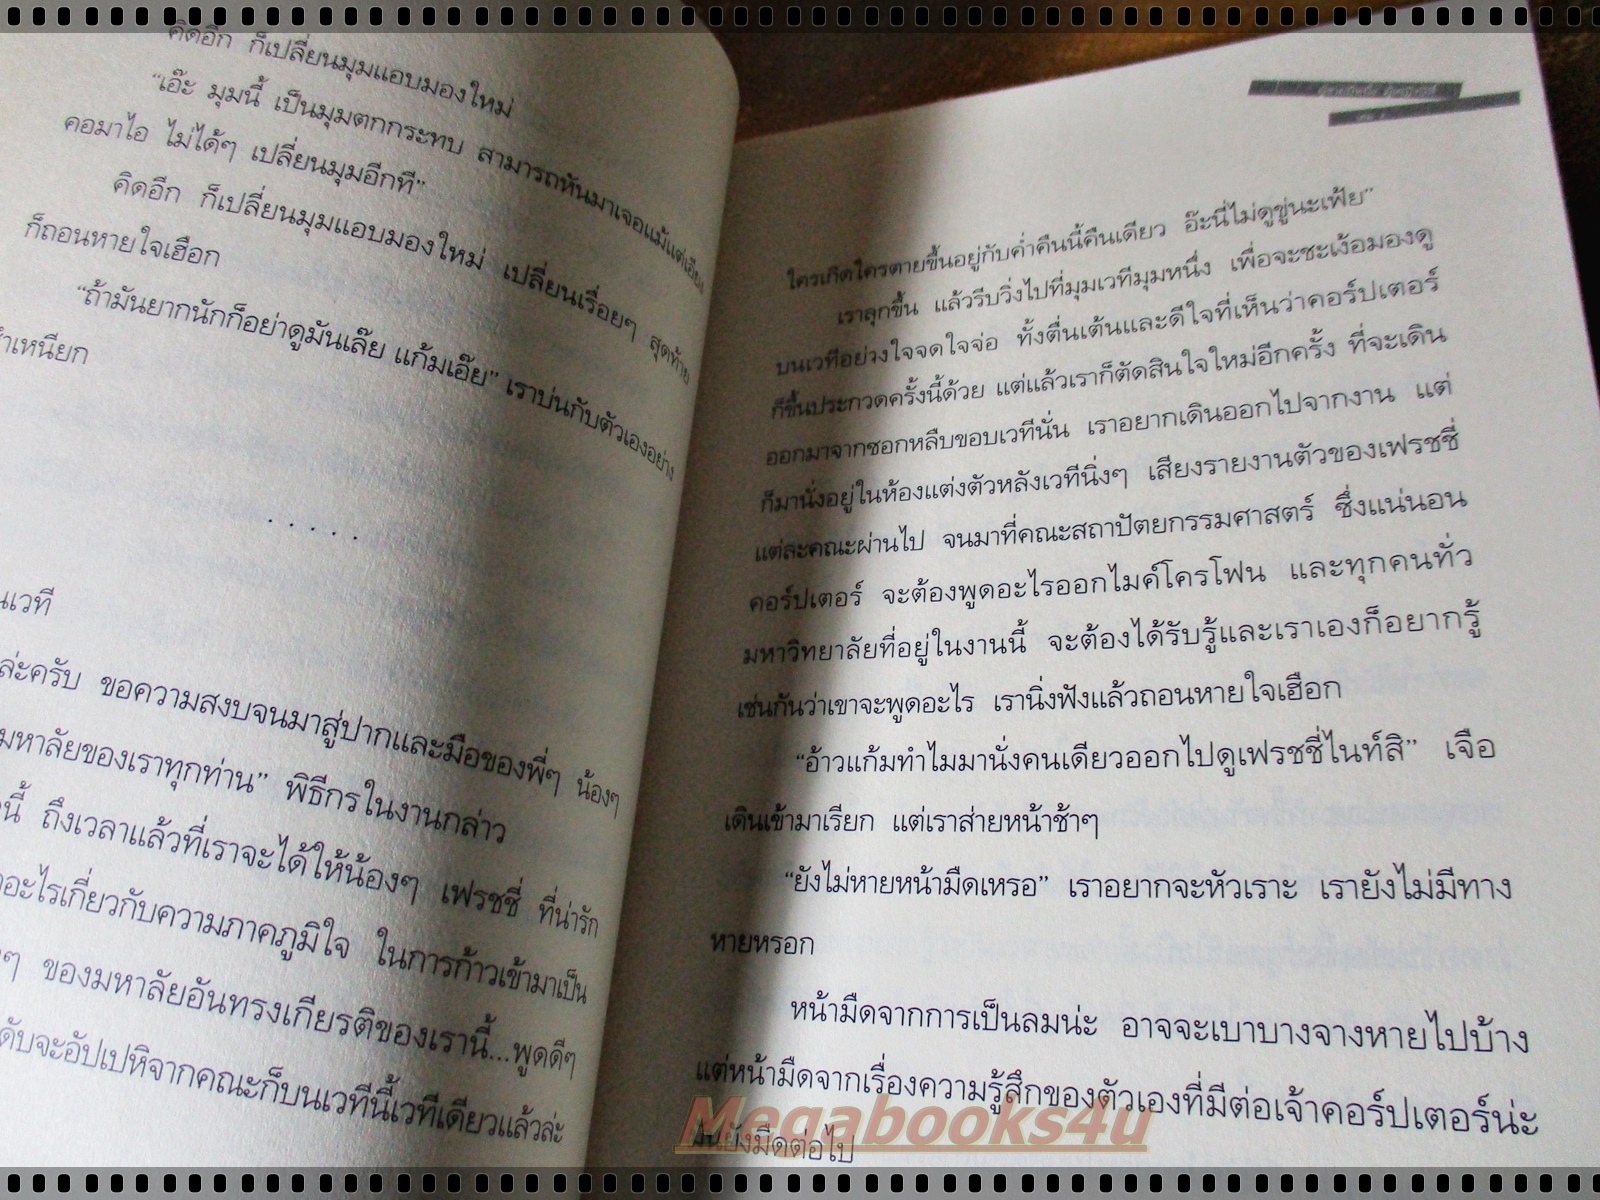 คิดอีก ก็เปลี่ยนมุมแอบมองใหม่
“เอ๊ะ มุมนี้ เป็นมุมตกกระทบ สามารถหันมาเจอแม้แต่เอียง
คอมาไอ ไม่ได้ๆ เปลี่ยนมุมอีกที”
คิดอีก ก็เปลี่ยนมุมแอบมองใหม่ เปลี่ยนเรื่อยๆ สุดท้าย
ก็ถอนหายใจเฮือก
“ถ้ามันยากนักก็อย่าดูมันเล๊ย แก้มเอ๊ย” เราบ่นกับตัวเองอย่าง
ำเหนียก
. . . . .
นเวที
ล่ะครับ ขอความสงบจนมาสู่ปากและมือของพี่ๆ น้องๆ
มหาลัยของเราทุกท่าน” พิธีกรในงานกล่าว
นี้ ถึงเวลาแล้วที่เราจะได้ให้น้องๆ เฟรชชี่ ที่น่ารัก
อะไรเกี่ยวกับความภาคภูมิใจ ในการก้าวเข้ามาเป็น
ๆ ของมหาลัยอันทรงเกียรติของเรานี้...พูดดีๆ
ดับจะอัปเปหิจากคณะก็บนเวทีนี้เวทีเดียวแล้วล่ะ
ใครเกิดใครตายขึ้นอยู่กับค่ำคืนนี้คืนเดียว อ๊ะนี่ไม่ดูขู่นะเฟ้ย”
เราลุกขึ้น แล้วรีบวิ่งไปที่มุมเวทีมุมหนึ่ง เพื่อจะชะเง้อมองดู
บนเวทีอย่างใจจดใจจ่อ ทั้งตื่นเต้นและดีใจที่เห็นว่าคอร์ปเตอร์
ก็ขึ้นประกวดครั้งนี้ด้วย แต่แล้วเราก็ตัดสินใจใหม่อีกครั้ง ที่จะเดิน
ออกมาจากซอกหลืบขอบเวทีนั่น เราอยากเดินออกไปจากงาน แต่
ก็มานั่งอยู่ในห้องแต่งตัวหลังเวทีนิ่งๆ เสียงรายงานตัวของเฟรชชี่
แต่ละคณะผ่านไป จนมาที่คณะสถาปัตยกรรมศาสตร์ ซึ่งแน่นอน
คอร์ปเตอร์ จะต้องพูดอะไรออกไมค์โครโฟน และทุกคนทั่ว
มหาวิทยาลัยที่อยู่ในงานนี้ จะต้องได้รับรู้และเราเองก็อยากรู้
เช่นกันว่าเขาจะพูดอะไร เรานิ่งฟังแล้วถอนหายใจเฮือก
“อ้าวแก้มทำไมมานั่งคนเดียวออกไปดูเฟรชชี่ไนท์สิ” เจือ
เดินเข้ามาเรียก แต่เราส่ายหน้าช้าๆ
“ยังไม่หายหน้ามืดเหรอ” เราอยากจะหัวเราะ เรายังไม่มีทาง
หายหรอก
หน้ามืดจากการเป็นลมน่ะ อาจจะเบาบางจางหายไปบ้าง
แต่หน้ามืดจากเรื่องความรู้สึกของตัวเองที่มีต่อเจ้าคอร์ปเตอร์น่ะ
ยังมืดต่อไป
Megabooks4u